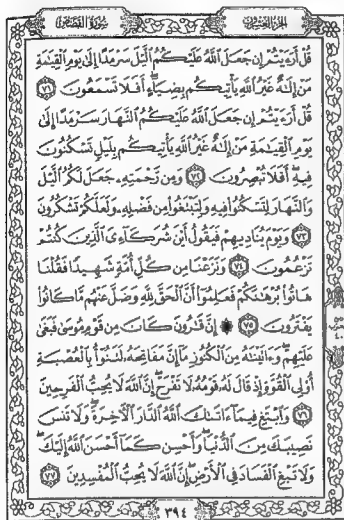 الجزء العشرون
سورة القصص
قُلْ أَرَءَيْتُمْ إِن جَعَلَ ٱللَّهُ عَلَيْكُمُ ٱلَّيْلَ سَرْمَدًا إِلَىٰ يَوْمِ ٱلْقِيَٰمَةِ
مَنْ إِلَٰهٌ غَيْرُ ٱللَّهِ يَأْتِيكُم بِضِيَآءٍ أَفَلَا تَسْمَعُونَ ٧١
قُلْ أَرَءَيْتُمْ إِن جَعَلَ ٱللَّهُ عَلَيْكُمُ ٱلنَّهَارَ سَرْمَدًا إِلَىٰ
يَوْمِ ٱلْقِيَٰمَةِ مَنْ إِلَٰهٌ غَيْرُ ٱللَّهِ يَأْتِيكُم بِلَيْلٍ تَسْكُنُونَ
فِيهِ أَفَلَا تُبْصِرُونَ ٧٢ وَمِن رَّحْمَتِهِۦ جَعَلَ لَكُمُ ٱلَّيْلَ
وَٱلنَّهَارَ لِتَسْكُنُوا۟ فِيهِ وَلِتَبْتَغُوا۟ مِن فَضْلِهِۦ وَلَعَلَّكُمْ تَشْكُرُونَ
٧٣ وَيَوْمَ يُنَادِيهِمْ فَيَقُولُ أَيْنَ شُرَكَآءِىَ ٱلَّذِينَ كُنتُمْ
تَزْعُمُونَ ٧٤ وَنَزَعْنَا مِن كُلِّ أُمَّةٍ شَهِيدًا فَقُلْنَا
هَاتُوا۟ بُرْهَٰنَكُمْ فَعَلِمُوٓا۟ أَنَّ ٱلْحَقَّ لِلَّهِ وَضَلَّ عَنْهُم مَّا كَانُوا۟
يَفْتَرُونَ ٧٥ ۞ إِنَّ قَٰرُونَ كَانَ مِن قَوْمِ مُوسَىٰ فَبَغَىٰ
عَلَيْهِمْ وَءَاتَيْنَٰهُ مِنَ ٱلْكُنُوزِ مَآ إِنَّ مَفَاتِحَهُۥ لَتَنُوٓأُ بِٱلْعُصْبَةِ
أُو۟لِى ٱلْقُوَّةِ إِذْ قَالَ لَهُۥ قَوْمُهُۥ لَا تَفْرَحْ إِنَّ ٱللَّهَ لَا يُحِبُّ ٱلْفَرِحِينَ
٧٦ وَٱبْتَغِ فِيمَآ ءَاتَىٰكَ ٱللَّهُ ٱلدَّارَ ٱلْءَاخِرَةَ وَلَا تَنسَ
نَصِيبَكَ مِنَ ٱلدُّنْيَا وَأَحْسِن كَمَآ أَحْسَنَ ٱللَّهُ إِلَيْكَ
وَلَا تَبْغِ ٱلْفَسَادَ فِى ٱلْأَرْضِ إِنَّ ٱللَّهَ لَا يُحِبُّ ٱلْمُفْسِدِينَ ٧٧
حزب
٤٠
٣٩٤